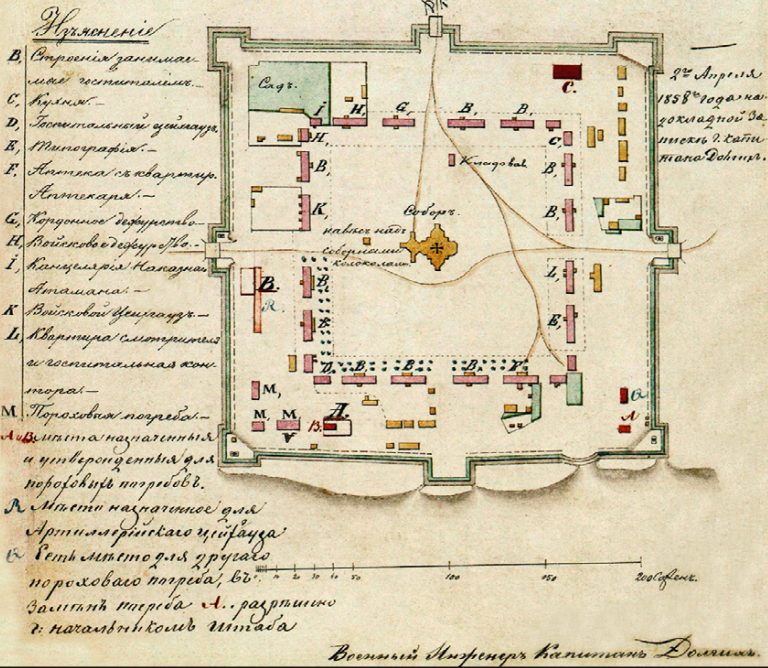 Изъясненіе
В, Строенія занимае-
мые госпиталемъ.-
С, Кухня.-
D, Госпитальный цейгаузъ
Е, Типографія.-
F, Аптека съ квартир.
Аптекаря.-
G, Кордонное дежурство-
Н, Войсковое дежурство.-
İ, Канцелярія Наказнаго
Атамана.-
К Войсковой Цейгаузъ-
L, Квартира смотрителя
и госпитальная кон-
тора.-
М Пороховыя погреба.-
А и В мѣста назначенныя
и утвержденныя для
пороховыхъ погребовъ.
R Мѣсто назначенное для
Артиллерійскаго цейгауза
Q Есть мѣсто для другаго
пороховаго погреба, въ
замѣнъ погреба А.. разрѣшено
г: начальникомъ Штаба
2го Апреля
1858го года на
докладной за-
писке г. капи-
тана Долгихъ.
Садъ.
С.
İ Н, G, В, В,
Н, С
Кладовая
В, В,
К, В,
Соборъ.
навѣсъ надъ
соборными
колоколам.
В. В, L,
R. В, Е,
D, В, В, В, F,
М, Q
М, М В. А. А
50 100 150 200 Сажень.
Военный Инженеръ Капитанъ Долгихъ.